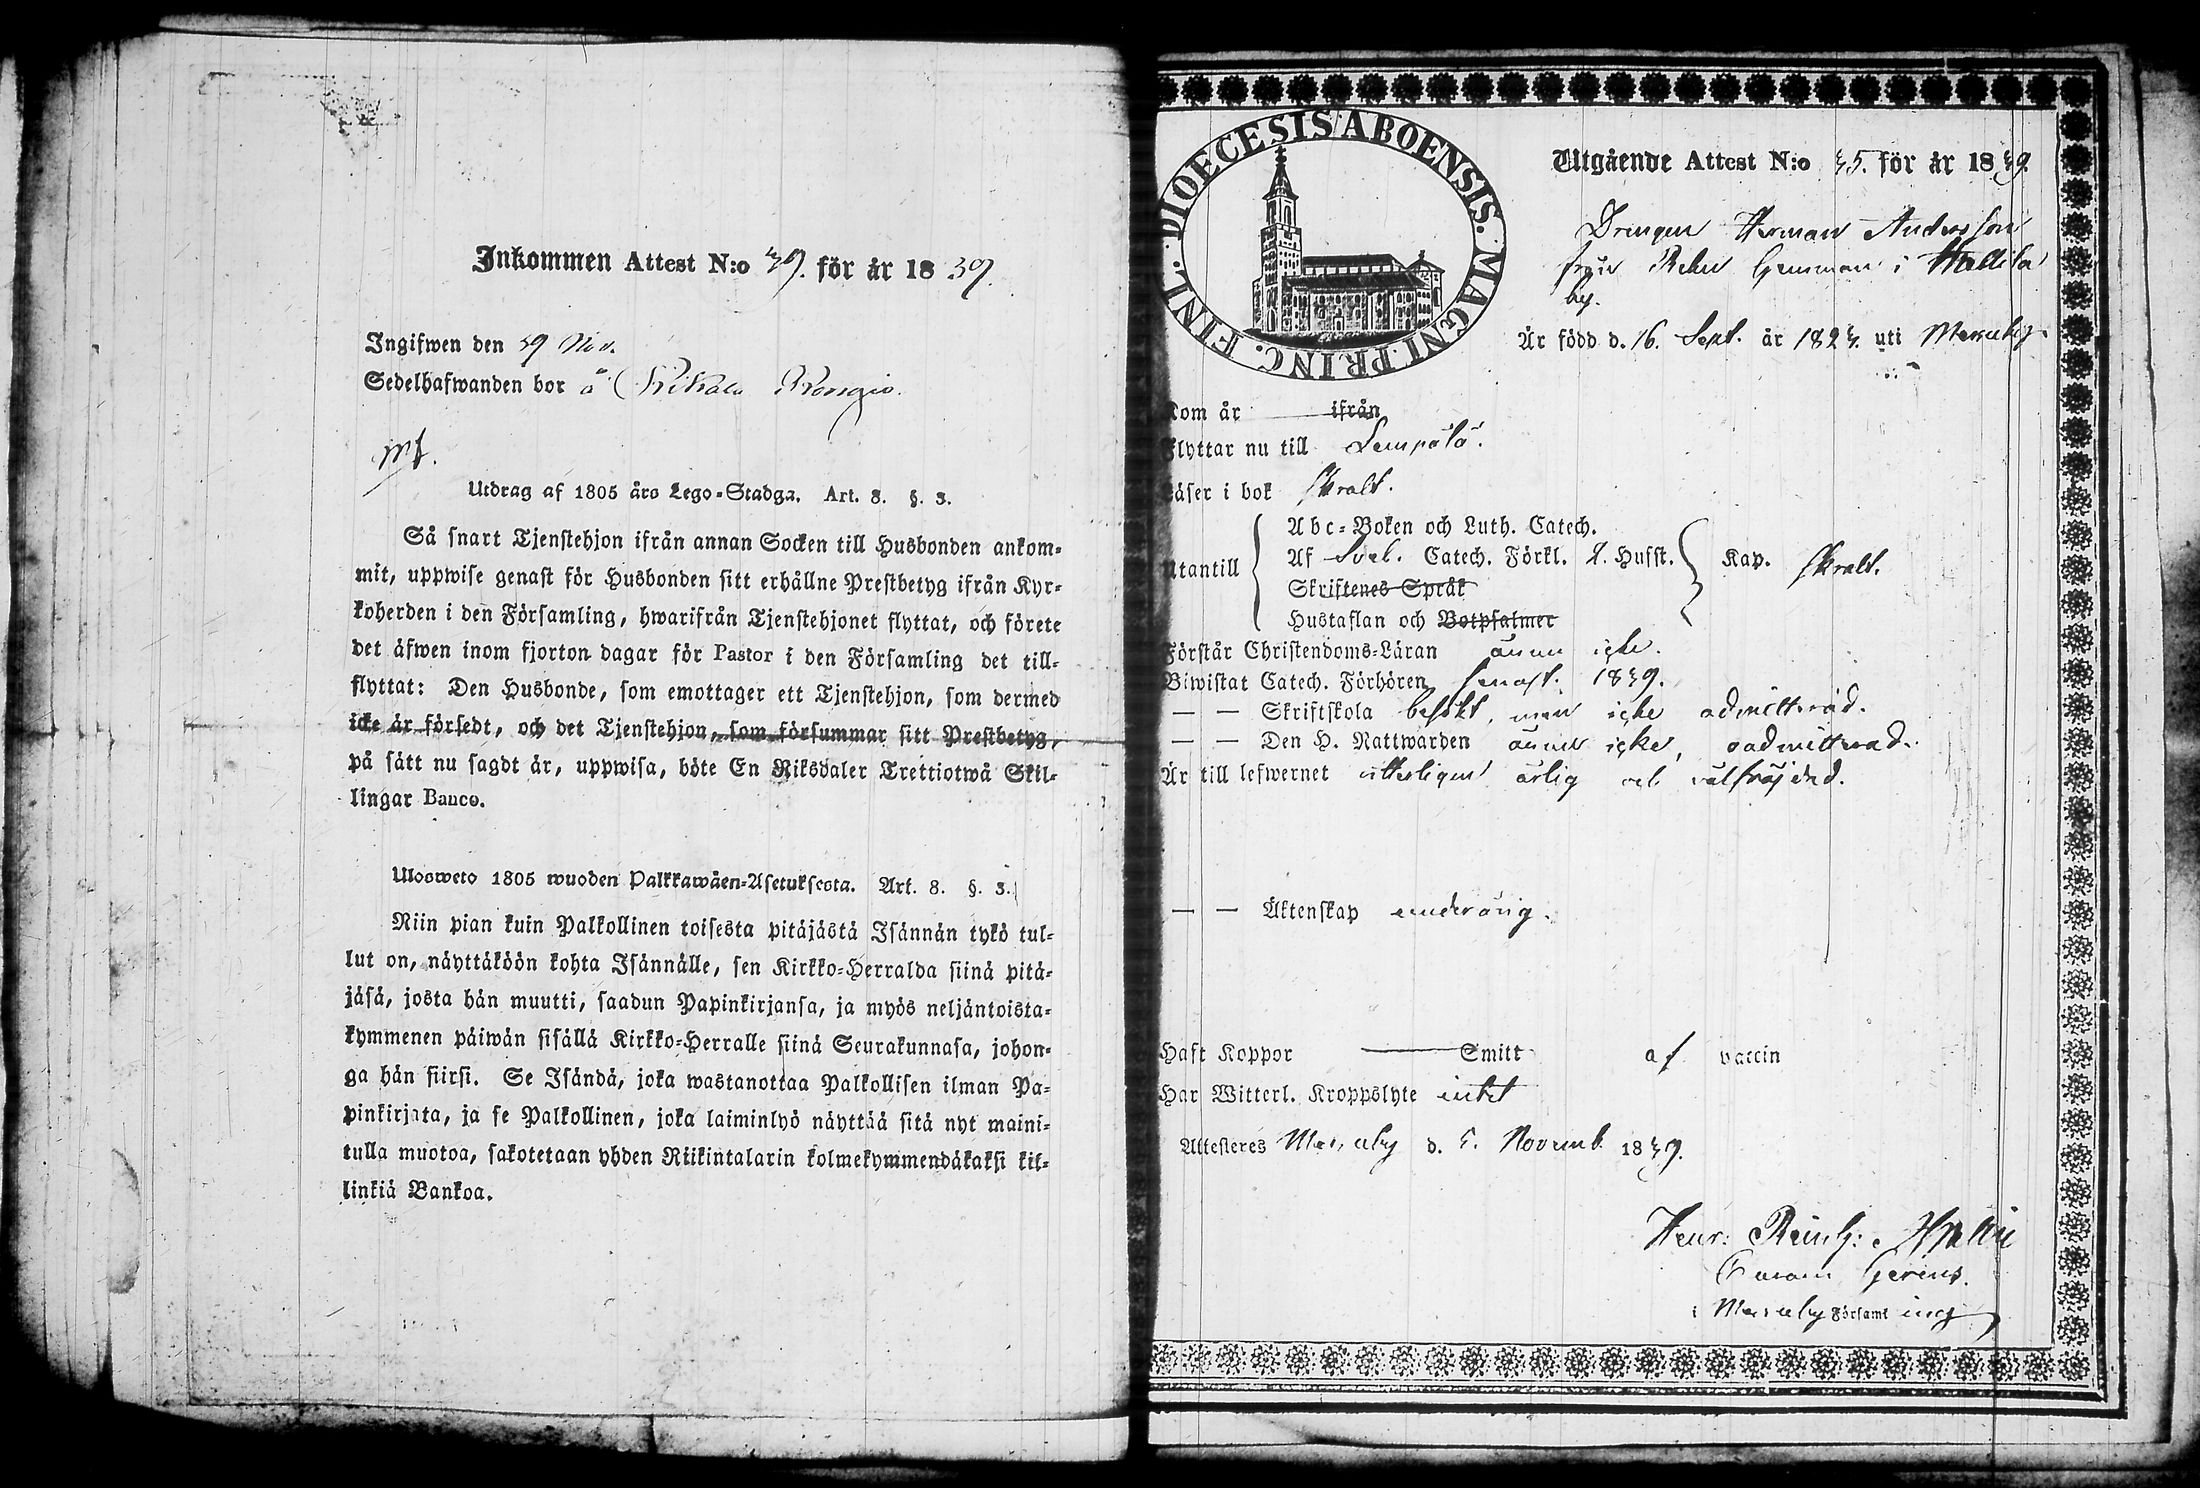 Inkommen Attest N:o 39. för år 1839.
Ingifwen den 29 Nov.
Sedelhafwanden bor å
Utdrag af 1805 års Lego-Stadga. Art. 8. §. 3.
Så snart Tjenstehjon ifrån annan Socken till Husbonden ankom-
mit, uppwise genast för Husbonden sitt erhållne Prestbetyg ifrån Kyr-
koherden i den Församling, hwarifrån Tjenstehjonet flyttat, och förete
det äfwen inom fjorton dagar för Pastor i den Församling det till-
flyttat: Den Husbonde, som emottager ett Tjenstehjon, som dermed
icke är försedt, och det Tjenstehjon, som försummar sitt Prestbetyg,
på sätt nu sagdt är, uppwisa, böte En Riksdaler Trettiotwå Skil-
lingar Banco.
Ulosweto 1805 wuoden Palkkawäen-Asetuksesta. Art. 8. §. 3.
Niin pian kuin Palkollinen toisesta pitäjästä Isännän tykö tul-
lut on, näyttäköön kohta Isännälle, sen Kirkko-Herralda siinä pitä-
jäsä, josta hän muutti, saadun Papinkirjansa, ja myös neljäntoista-
kymmenen päiwän sisällä Kirkko-Herralle siinä Seurakunnasa, johon-
ga hän siirsi. Se Isändä, joka wastanottaa Palkollisen ilman Pa-
pinkirjata, ja se Palkollinen, joka laiminlyö näyttää sitä nyt maini-
tulla muotoa, sakotetaan yhden Riikintalarin kolmekymmendäkaksi kil-
linkiä Bankoa.
DIOECESIS ABOENSIS. MAGNI PRINC. FINL.
Utgående Attest N:o 35. för år 1839.
Drengen Herman Andersson
från i
by.
Är född d. 16. Sept. år 1823. uti Messuby.
Kom år ifrån
Flyttar nu till Lempälä.
Läser i bok skralt.
Utantill
Abc-Boken och Luth. Catech.
Af Svel. Catech. Förkl. 2. Husst. Kap. skralt.
Skriftenes Språk
Hustaflan och Botpsalmer
Förstår Christendoms-Läran ännu icke.
Biwistat Catech. Förhören senast 1839.
— — Skriftskola besökt, men icke admitterad.
— — Den H. Nattwarden ännu icke, oadmitterad.
Är till lefwernet witterligen ärlig och välfräjdad.
— — Äktenskap underårig.
Haft Koppor Smitt af vaccin
Har Witterl. Kroppslyte intet
Attesteres Messuby d. 5. Novemb. 1839.
Henr: Reinh:
Gerens.
i Messuby Församling